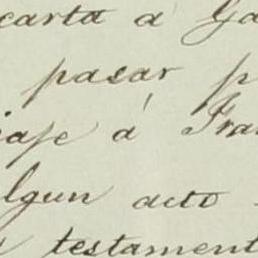 carta á Ga
pasar p
iaje á Fran
lgun acto
testament